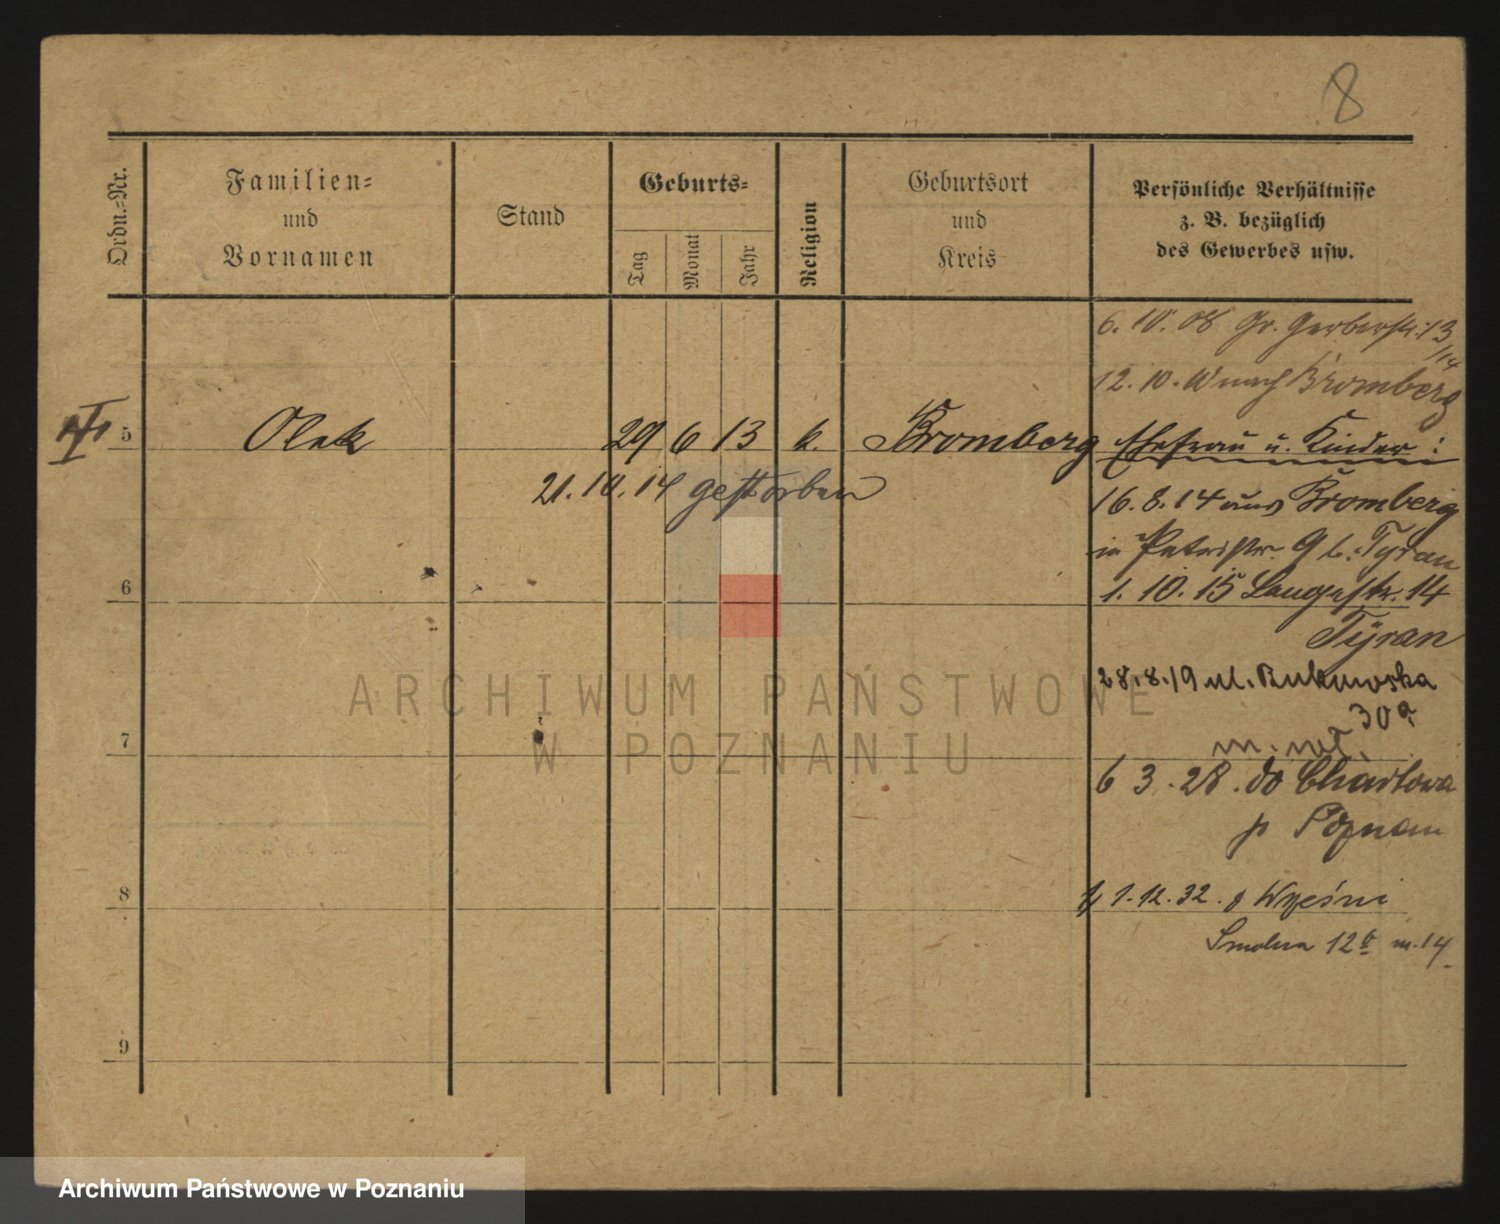 8
Ordn.=Nr.
Familien=
und
Vornamen
Stand
Geburts=
Tag
Monat
Jahr
Religion
Geburtsort
und
Kreis
Persönliche Verhältnisse
z. B. bezüglich
des Gewerbes usw.
6. 10. 08 Gr. Gerberstr. 13
/14
12. 10. nach Bromberg
5 Olek 29 6 13 k. Bromberg
Ehefrau u. Kinder :
21. 10. 14 gestorben
16. 8. 14 aus Bromberg
in Petristr. 9 b. Tyran
6
1. 10. 15 Langestr. 14
Tyran
28. 8. 19 ul. Bukowska
30a
m. wł.
ARCHIWUM PAŃSTWOWE
W POZNANIU
7
6 3. 28. do Chartowa
p Poznan
8
1. 12. 32. z Wrześni
Smolna 12b m. 14
9
Archiwum Państwowe w Poznaniu